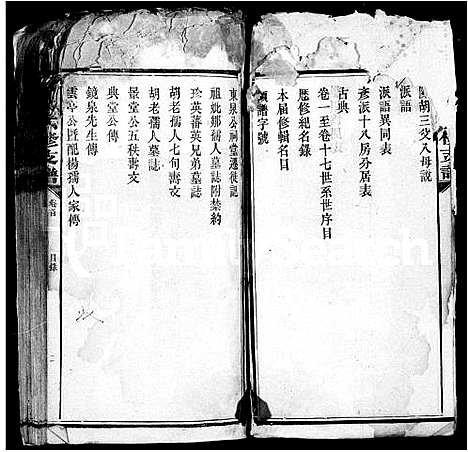 胡三父八母說
派語
派語異同表
彥派十八房分居表
古典
卷一至卷十七世系世序目
歷修紀名錄
本届修輯名目
領譜字號
東泉公祠堂遷徙記
祖妣鄒孺人墓誌附禁約
珍英蕃英兄弟墓誌
胡老孺人七旬壽文
胡老孺人墓誌
景堂公五秩壽文
典堂公傳
鏡泉先生傳
雲亭公暨配楊孺人家傳
修支譜
卷首
目錄
FamilySearch